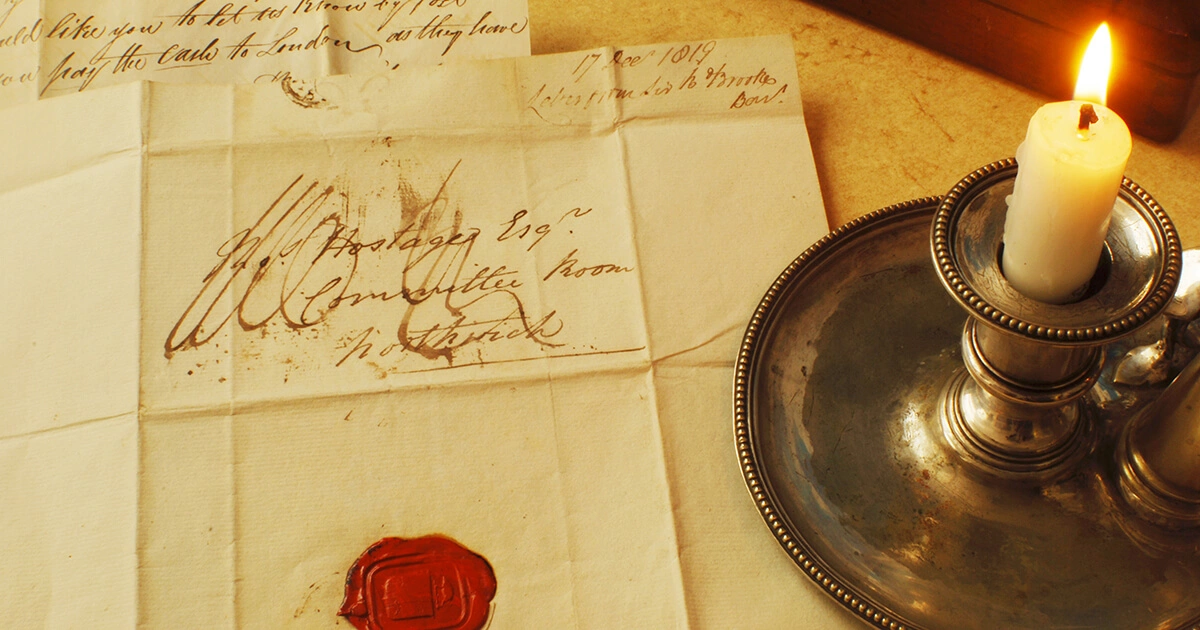 like you to let us know by post
you pay the cash to London as they have
17 Dec 1819
Letter from Sir R Brooke
Bart
Hostage Esqr
Committee Room
Northwich